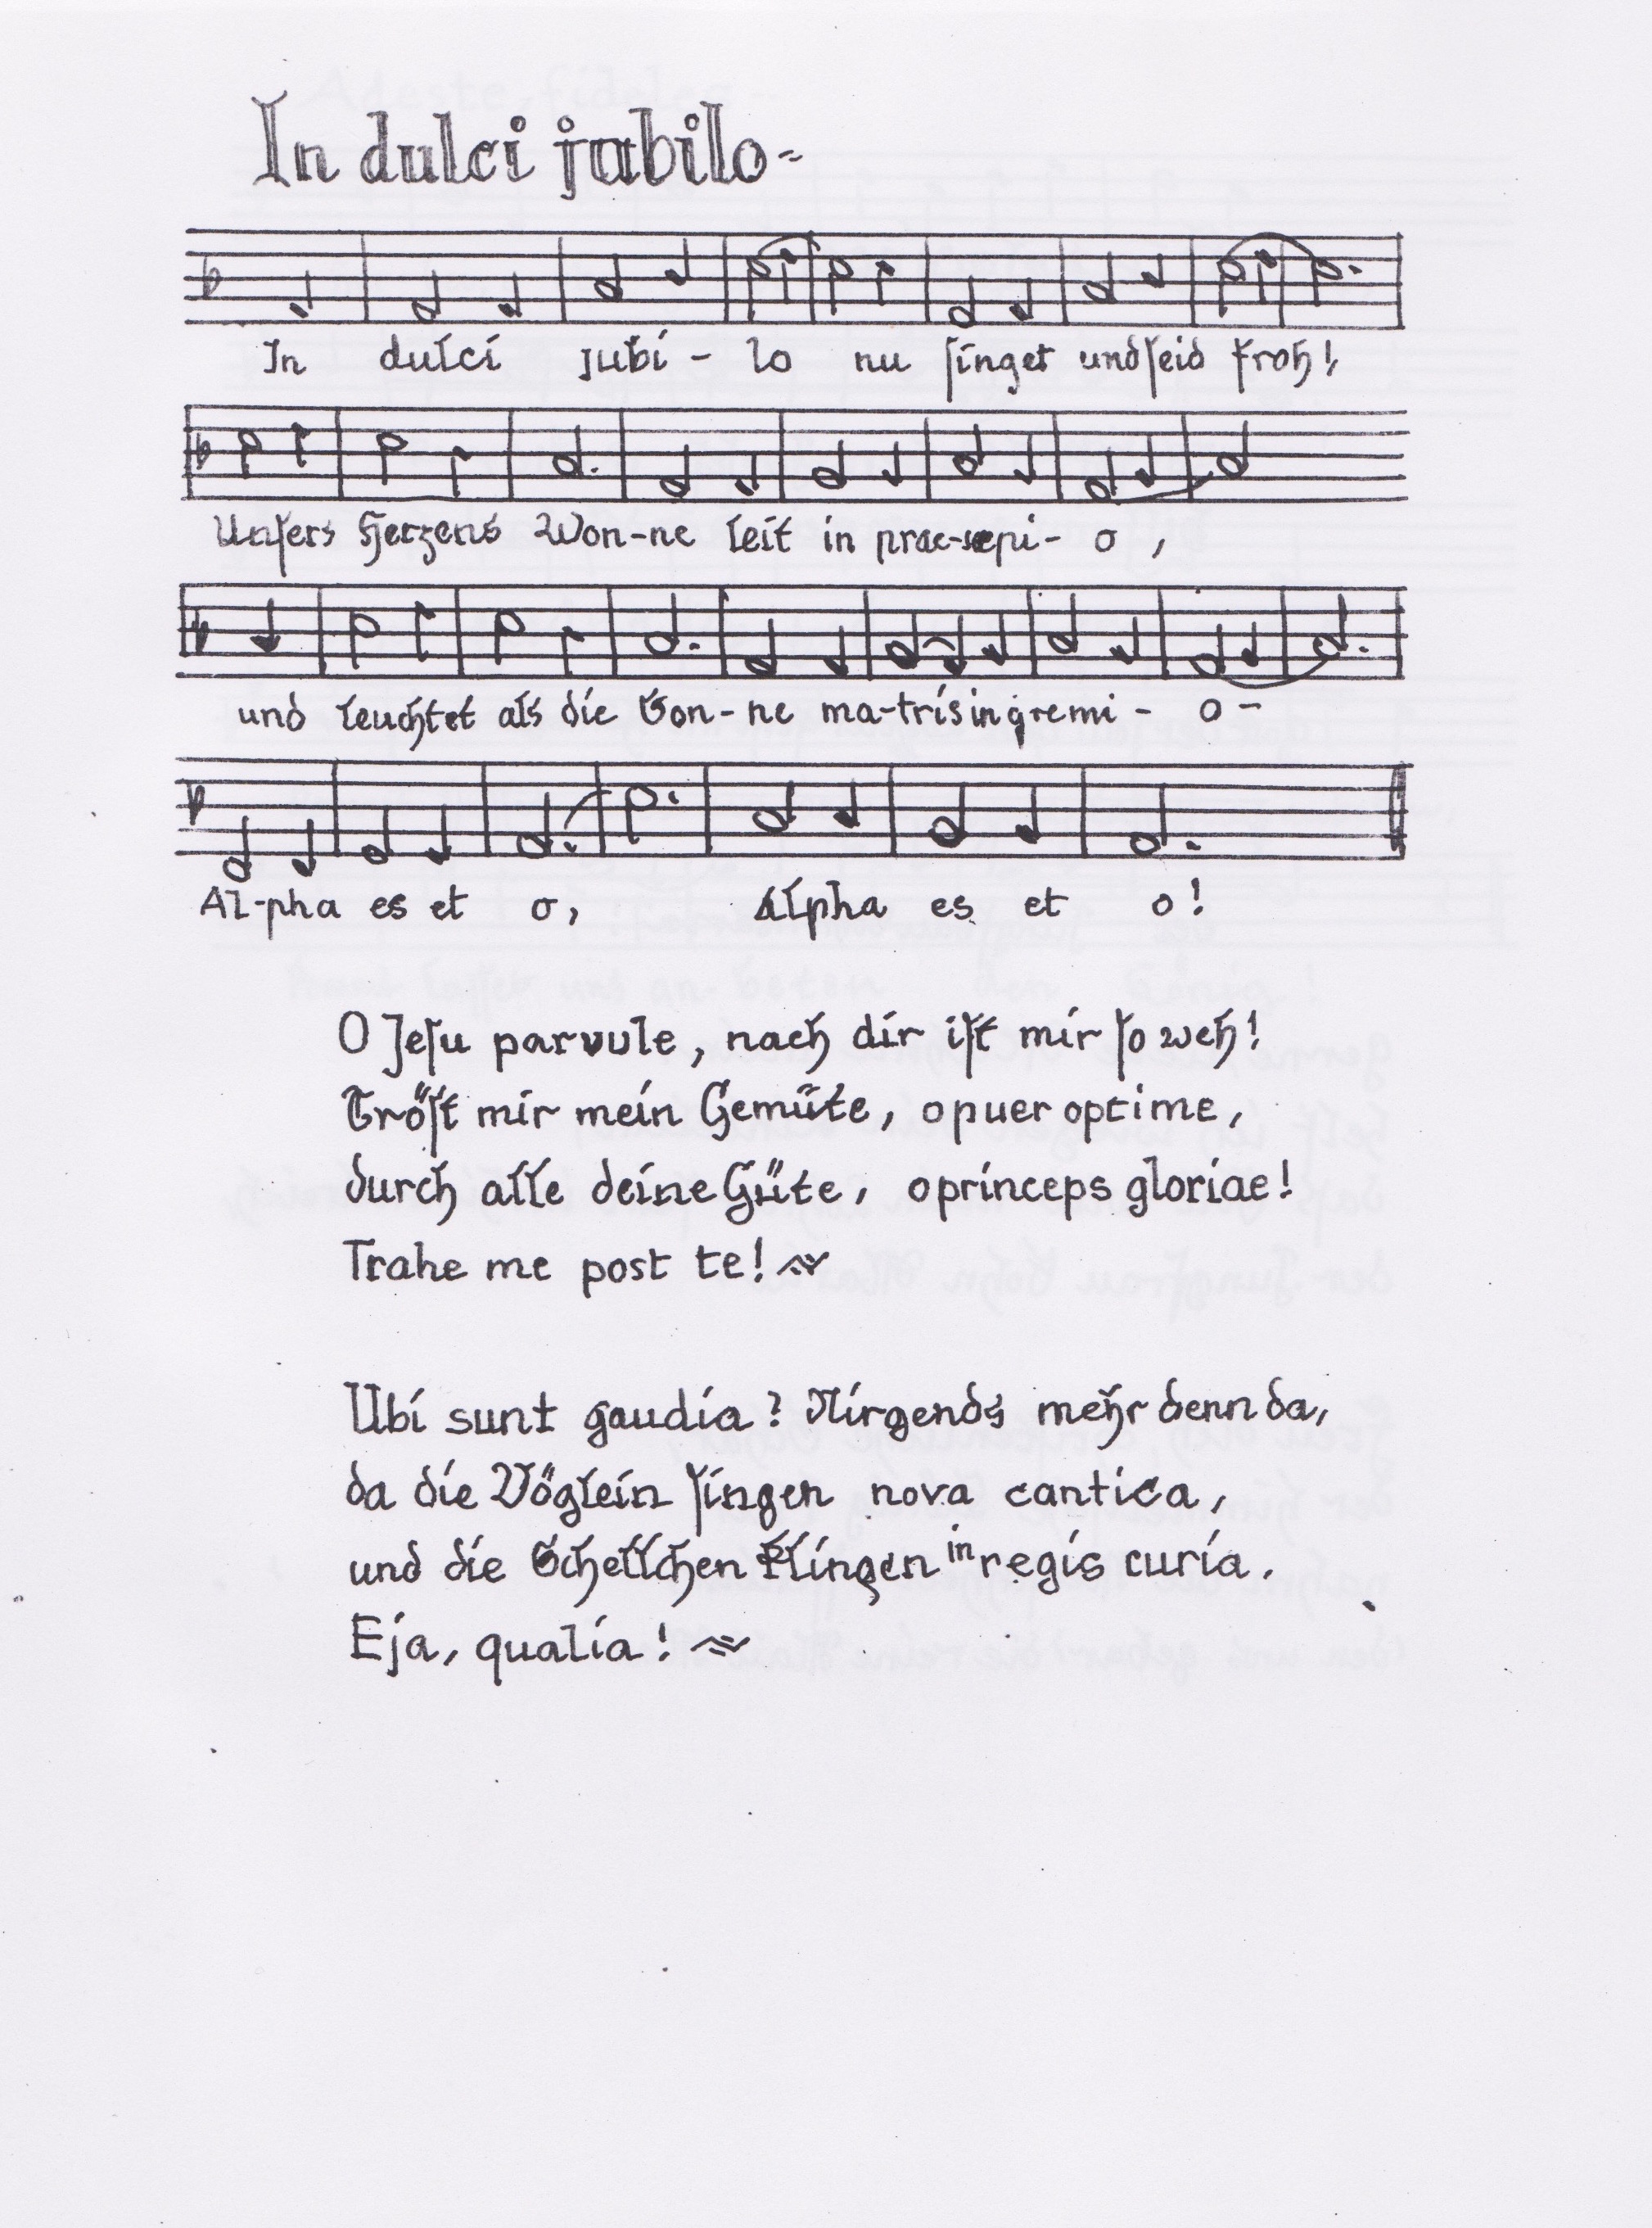 In dulci jubilo-
In dulci jubi - lo nu singet und seid froh!
Unsers Herzens Won-ne leit in prae-sepi- o ,
und leuchtet als die Son-ne ma-tris in gremi - o -
Al-pha es et o, Alpha es et o!
O Jesu parvule, nach dir ist mir so weh!
Tröst mir mein Gemüte, o puer optime,
durch alle deine Güte, o princeps gloriae!
Trahe me post te!
Ubi sunt gaudia? Nirgends mehr denn da,
da die Vöglein singen nova cantica,
und die Schellchen klingen in regis curia.
Eja, qualia!